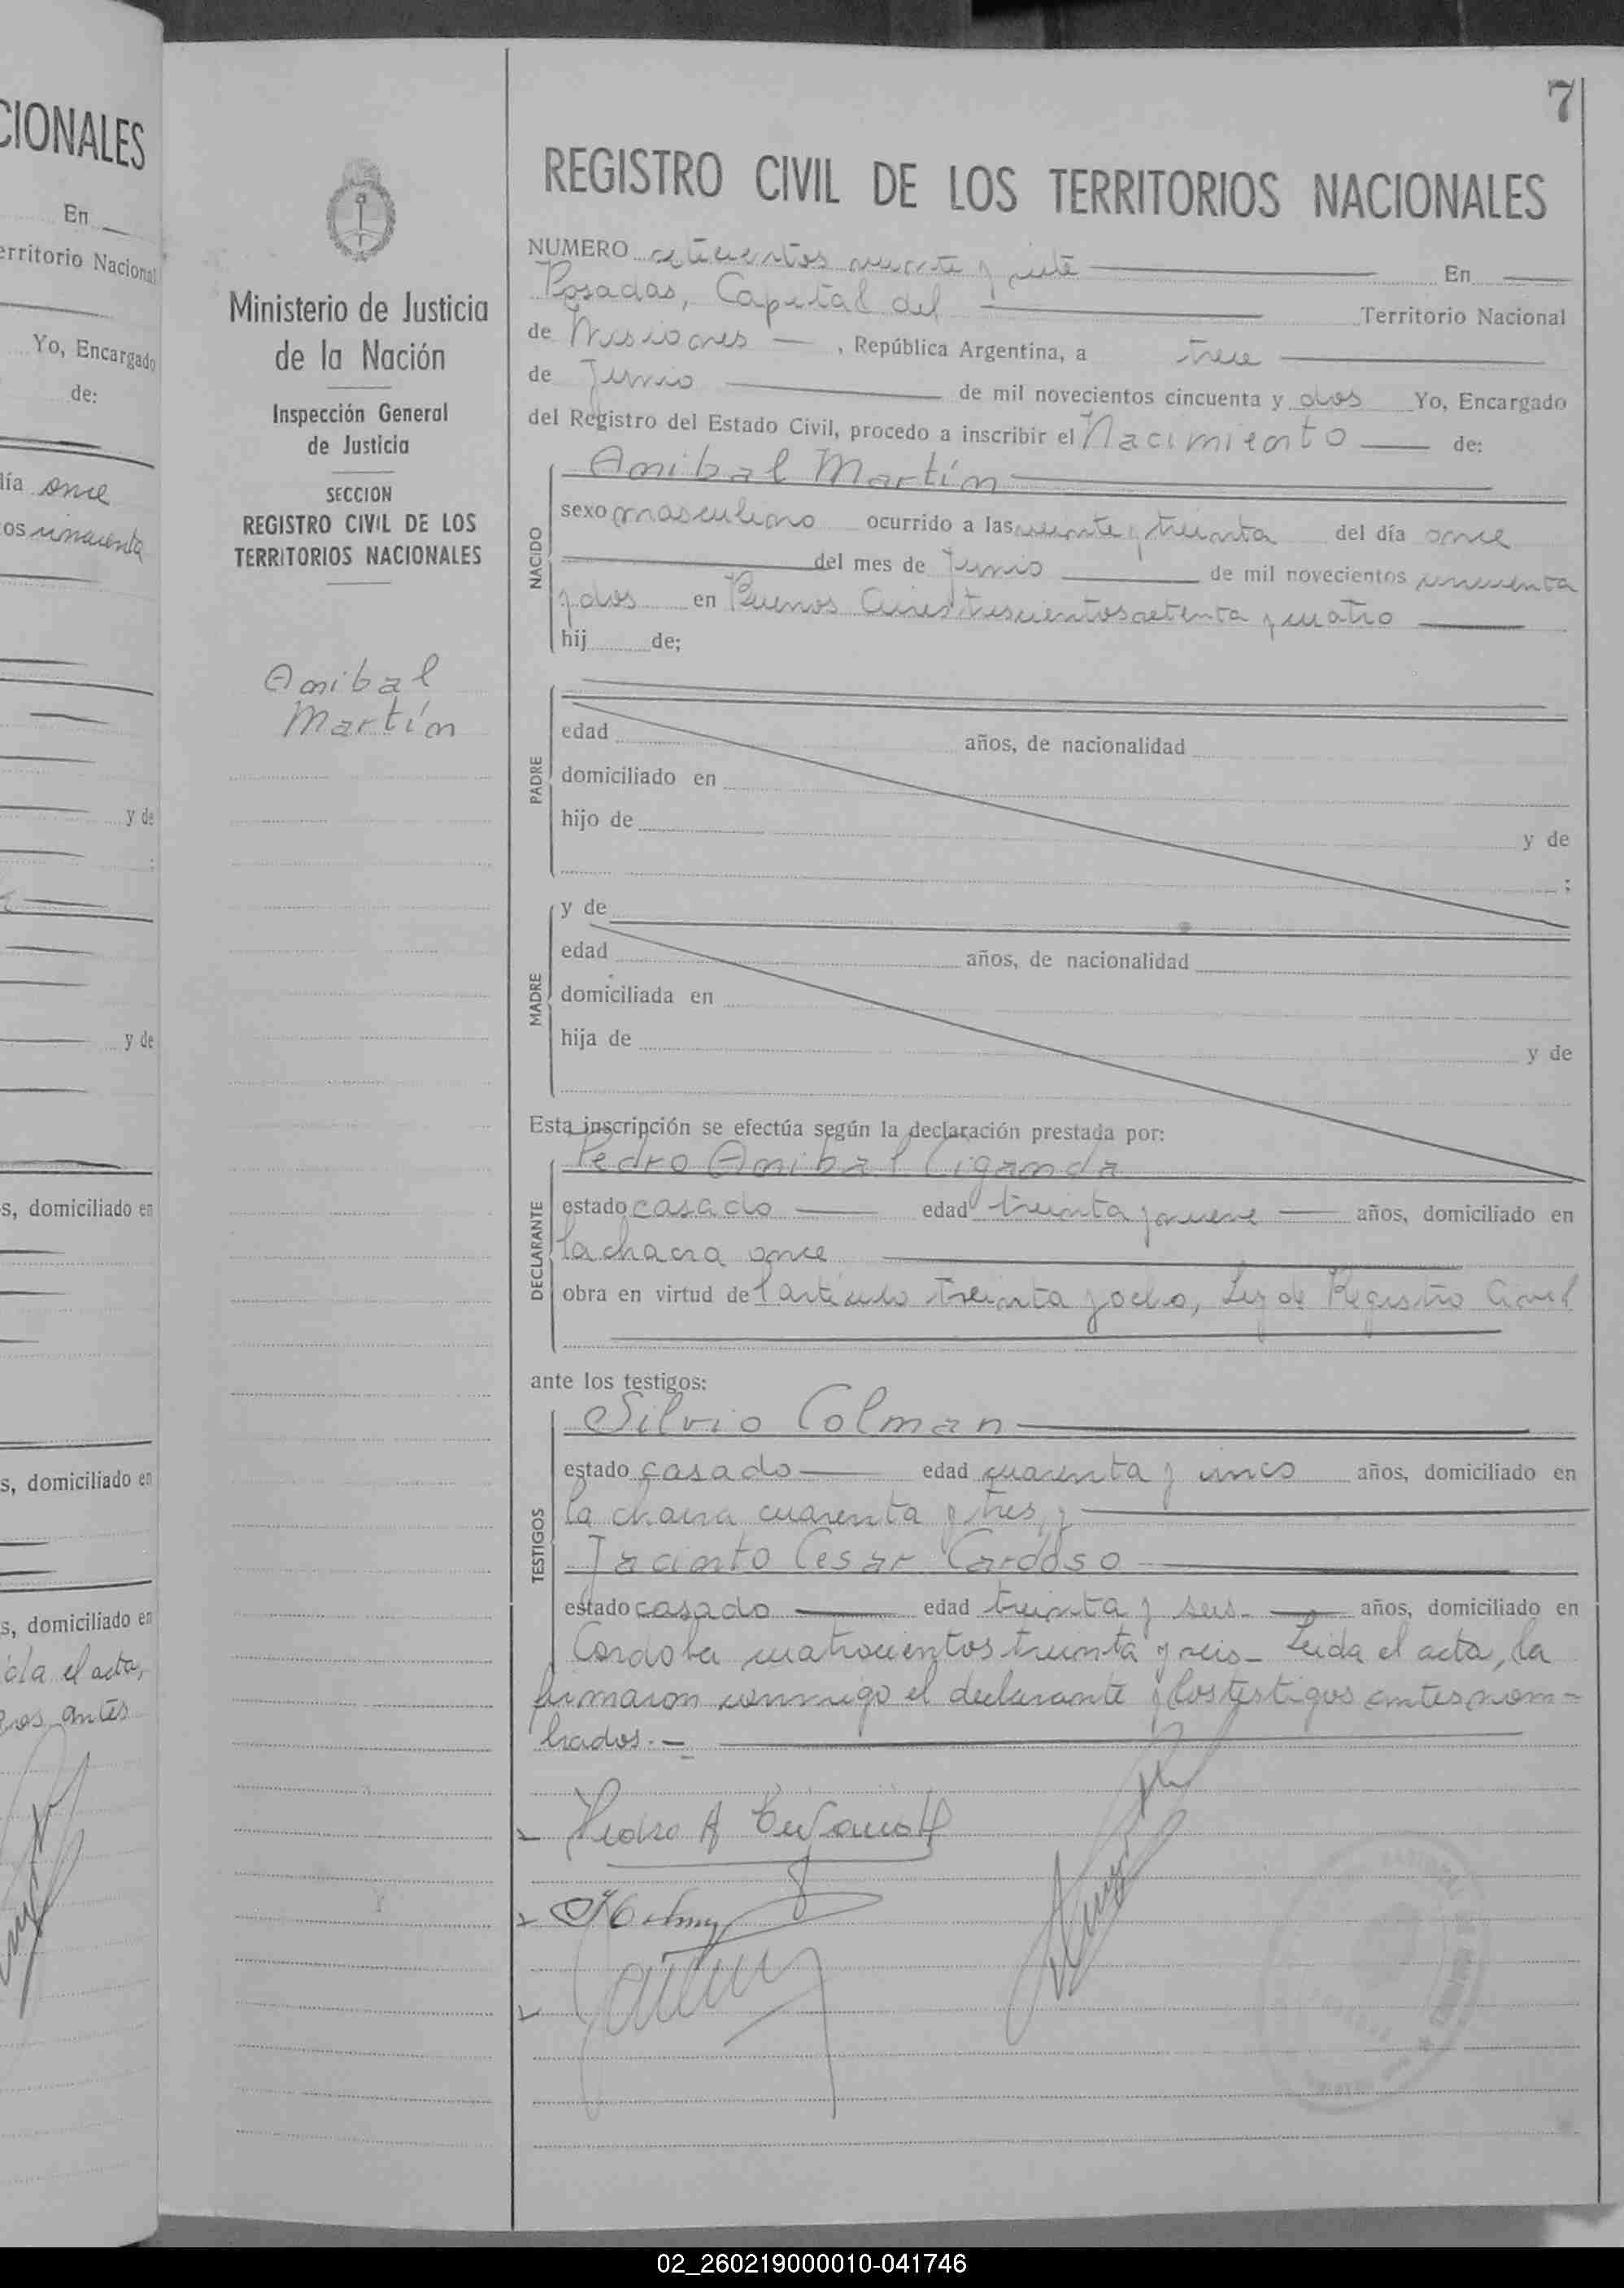 CIONALES
En
erritorio Nacional
Yo, Encargado
de:
día once
os cincuenta
y de
y de
s, domiciliado en
s, domiciliado en
s, domiciliado en
ída el acta,
gos antes
Ministerio de Justicia
de la Nación
Inspección General
de Justicia
SECCION
REGISTRO CIVIL DE LOS
TERRITORIOS NACIONALES
Anibal
Martín
7
REGISTRO CIVIL DE LOS TERRITORIOS NACIONALES
NUMERO setecientos veinte y siete En
Posadas, Capital del Territorio Nacional
de Misiones , República Argentina, a trece
de Junio de mil novecientos cincuenta y dos Yo, Encargado
del Registro del Estado Civil, procedo a inscribir el Nacimiento de:
NACIDO
Anibal Martín
sexo masculino ocurrido a las veinte y treinta del día once
del mes de Junio de mil novecientos cincuenta
y dos en Buenos Aires trescientos setenta y cuatro
hij de;
PADRE
edad años, de nacionalidad
domiciliado en
hijo de y de
;
MADRE
y de
edad años, de nacionalidad
domiciliada en
hija de y de
Esta inscripción se efectúa según la declaración prestada por:
DECLARANTE
Pedro Anibal Ciganda
estado casado edad treinta y nueve años, domiciliado en
la chacra once
obra en virtud del artículo treinta y ocho, Ley de Registro Civil
ante los testigos:
TESTIGOS
Silvio Colman
estado casado edad cuarenta y cinco años, domiciliado en
la chacra cuarenta y tres, y
Jacinto Cesar Cardoso
estado casado edad treinta y seis.- años, domiciliado en
Cordoba cuatrocientos treinta y seis- Leida el acta, la
firmaron conmigo el declarante y los testigos antes nom=
brados.-
Pedro A
02_260219000010-041746